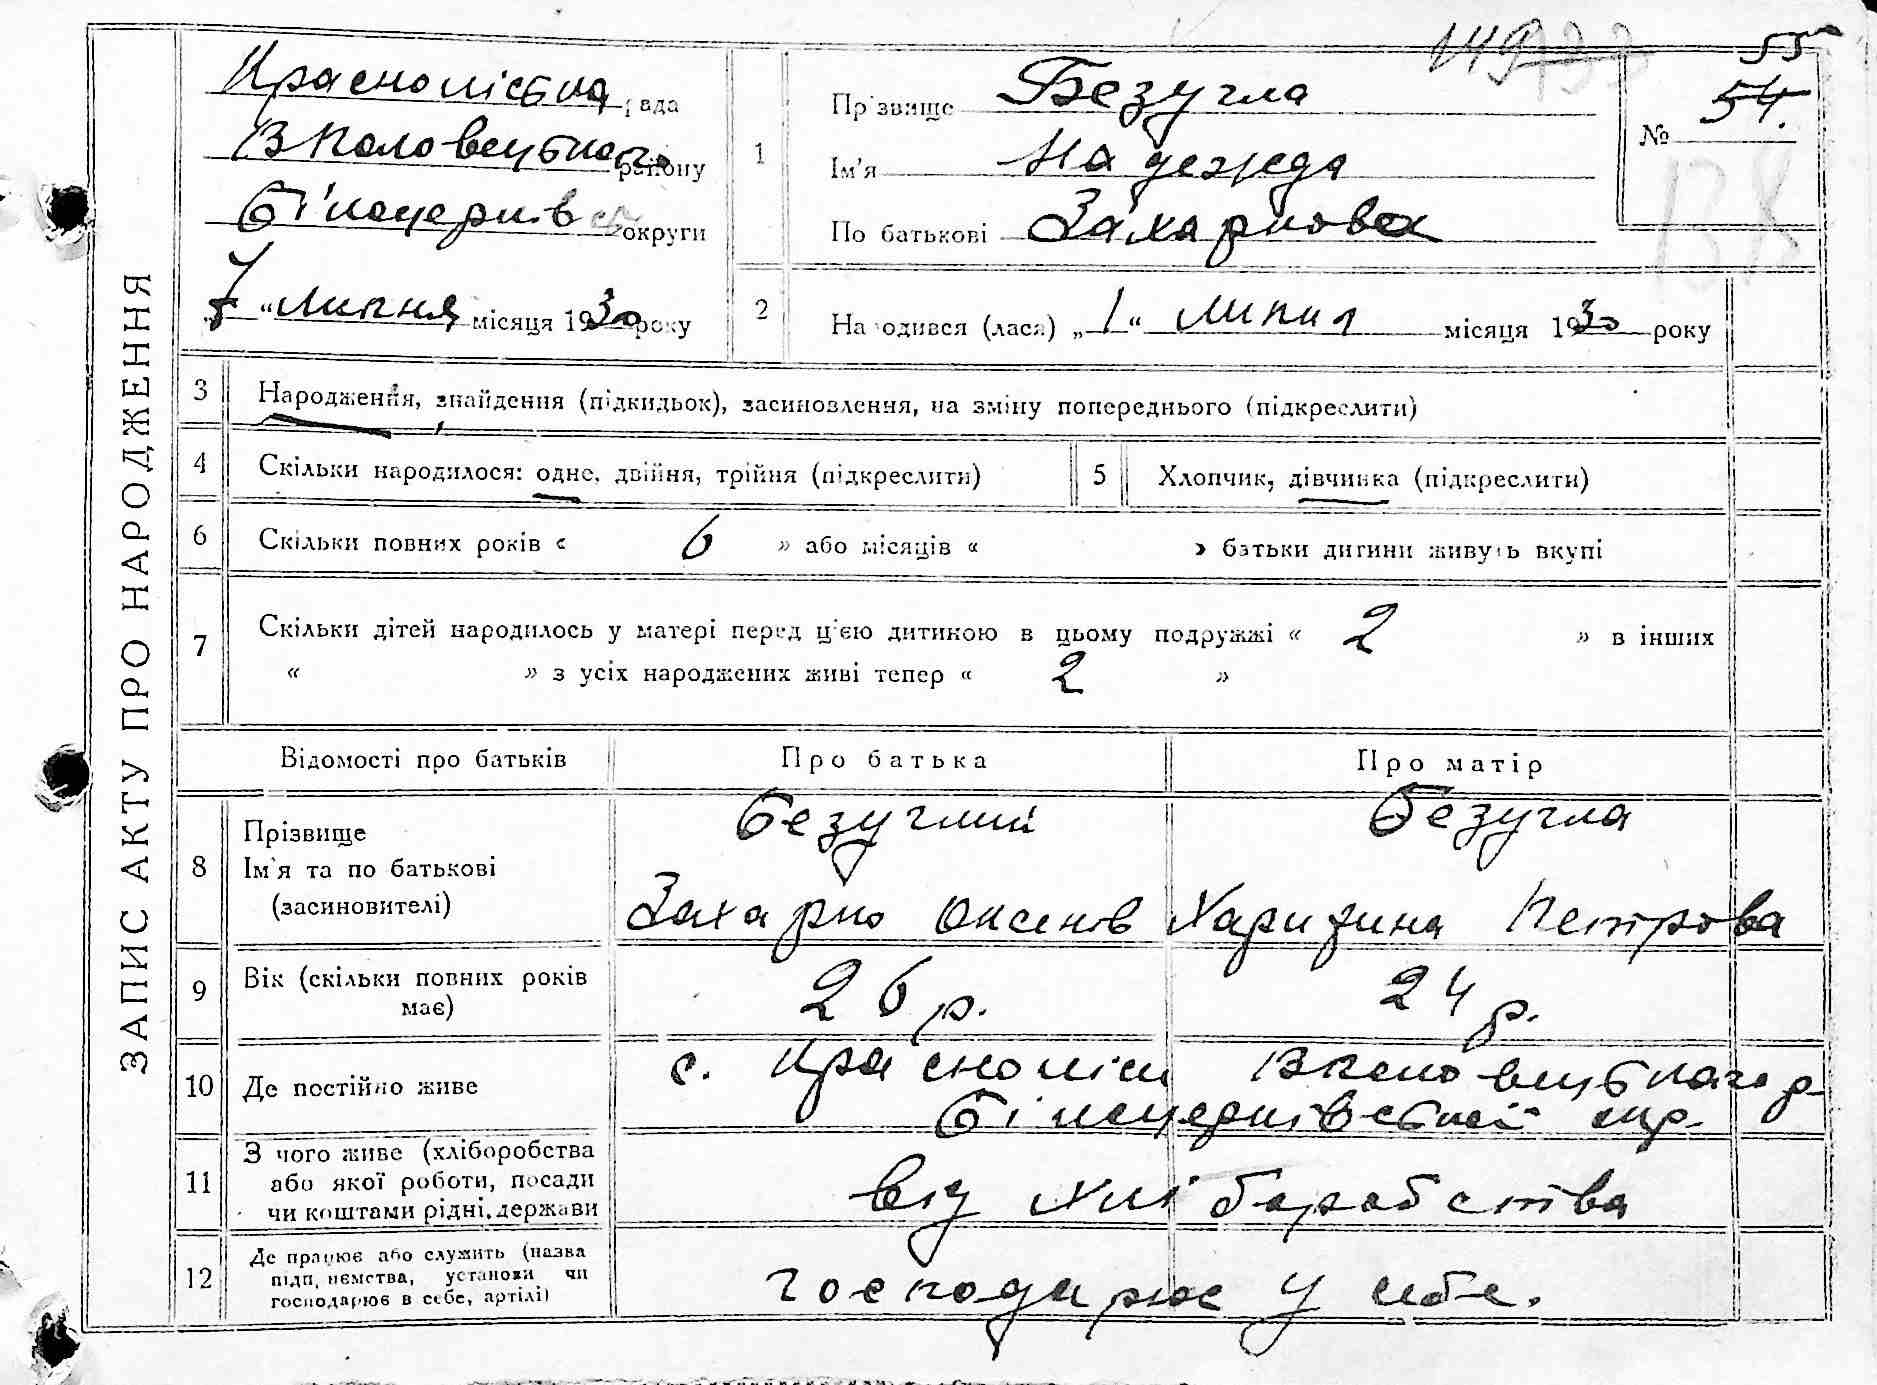 149
55
54.
Краснолісна рада
Вполовецького району
Білоцерківс округи
7 „ “ Липня місяця 1930 року
ЗАПИС АКТУ ПРО НАРОДЖЕННЯ
1
Прізвище Безугла
Ім'я Надежда
По батькові Захаркова
№
2
Народився (лася) „1“ Липня місяця 1930 року
3 Народження, знайдення (підкидьок), засиновлення, на зміну попереднього (підкреслити)
4 Скільки народилося: одне, двійня, трійня (підкреслити)
5 Хлопчик, дівчинка (підкреслити)
6 Скільки повних років « 6 » або місяців « » батьки дитини живуть вкупі
7 Скільки дітей народилось у матері перед ц'єю дитиною в цьому подружжі « 2 » в інших
« » з усіх народжених живі тепер « 2 »
Відомості про батьків Про батька Про матір
8 Прізвище
Ім'я та по батькові
(засиновителі)
Безуглий
Захарко Оксенів
Безугла
Харитина Петрова
9 Вік (скільки повних років
має)
26 р. 24 р.
10 Де постійно живе
с. Краснолісы Вполовецького р-
Білоцерківської окр.
11 З чого живе (хліборобства
або якої роботи, посади
чи коштами рідні, держави
від хліборобства
12 Де працює або служить (назва
підп, нємства, установи чи
господарює в себе, артілі)
господарює у себе.